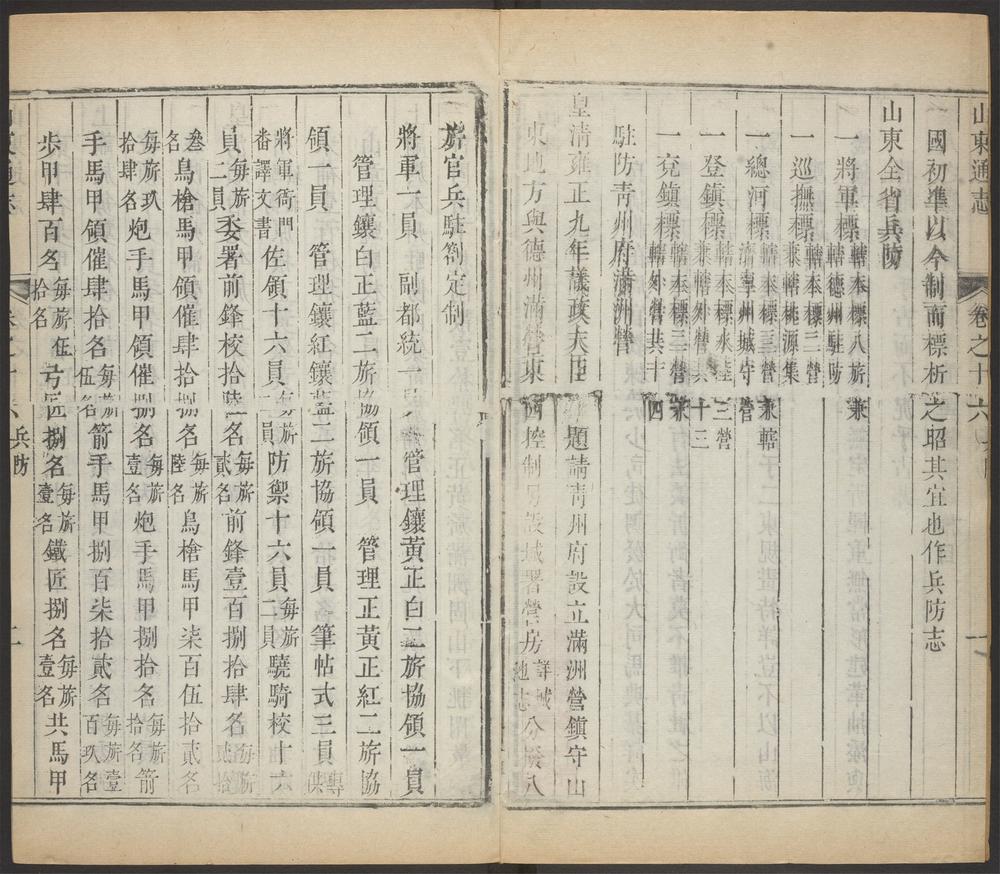 山東通志 卷之十六 一
國初準以今制而標析之昭其宜也作兵防志
山東全省兵防
一將軍標轄本標八旂兼轄德州駐防
一巡撫標轄本標二營兼轄桃源集
一總河標轄本標三營兼轄濟寧州城守營
一登鎮標轄本標水陸三營兼轄外營共十三
一兗鎮標轄本標三營兼轄外營共十四
駐防青州府滿洲營
皇清雍正九年議政大臣 題請青州府設立滿洲營鎮守山
東地方與德州滿營東西控制 設城署營房詳城池志分發八
旂官兵駐劄定制
將軍一員 副都統一員 管理鑲黃正白二旂協領一員
管理鑲白正藍二旂協領一員 管理正黃正紅二旂協
領一員 管理鑲紅鑲藍二旂協領一員 筆帖式三員專供
將軍衙門番譯文書佐領十六員每旂二員防禦十六員每旂二員驍騎校十六
員每旂二員委署前鋒校拾陸名每旂貳名前鋒壹百捌拾肆名每旂貳拾
叁名鳥槍馬甲領催肆拾捌名每旂陸名鳥槍馬甲柒百伍拾貳名
每旂玖拾肆名炮手馬甲領催捌名每旂壹名炮手馬甲捌拾名每旂拾名箭
手馬甲領催肆拾名每旂伍名箭手馬甲捌百柒拾貳名每旂壹百玖名
步甲肆百名每旂伍拾名弓匠捌名每旂壹名鐵匠捌名每旂壹名共馬甲
山東通志 卷之十六 兵防 二